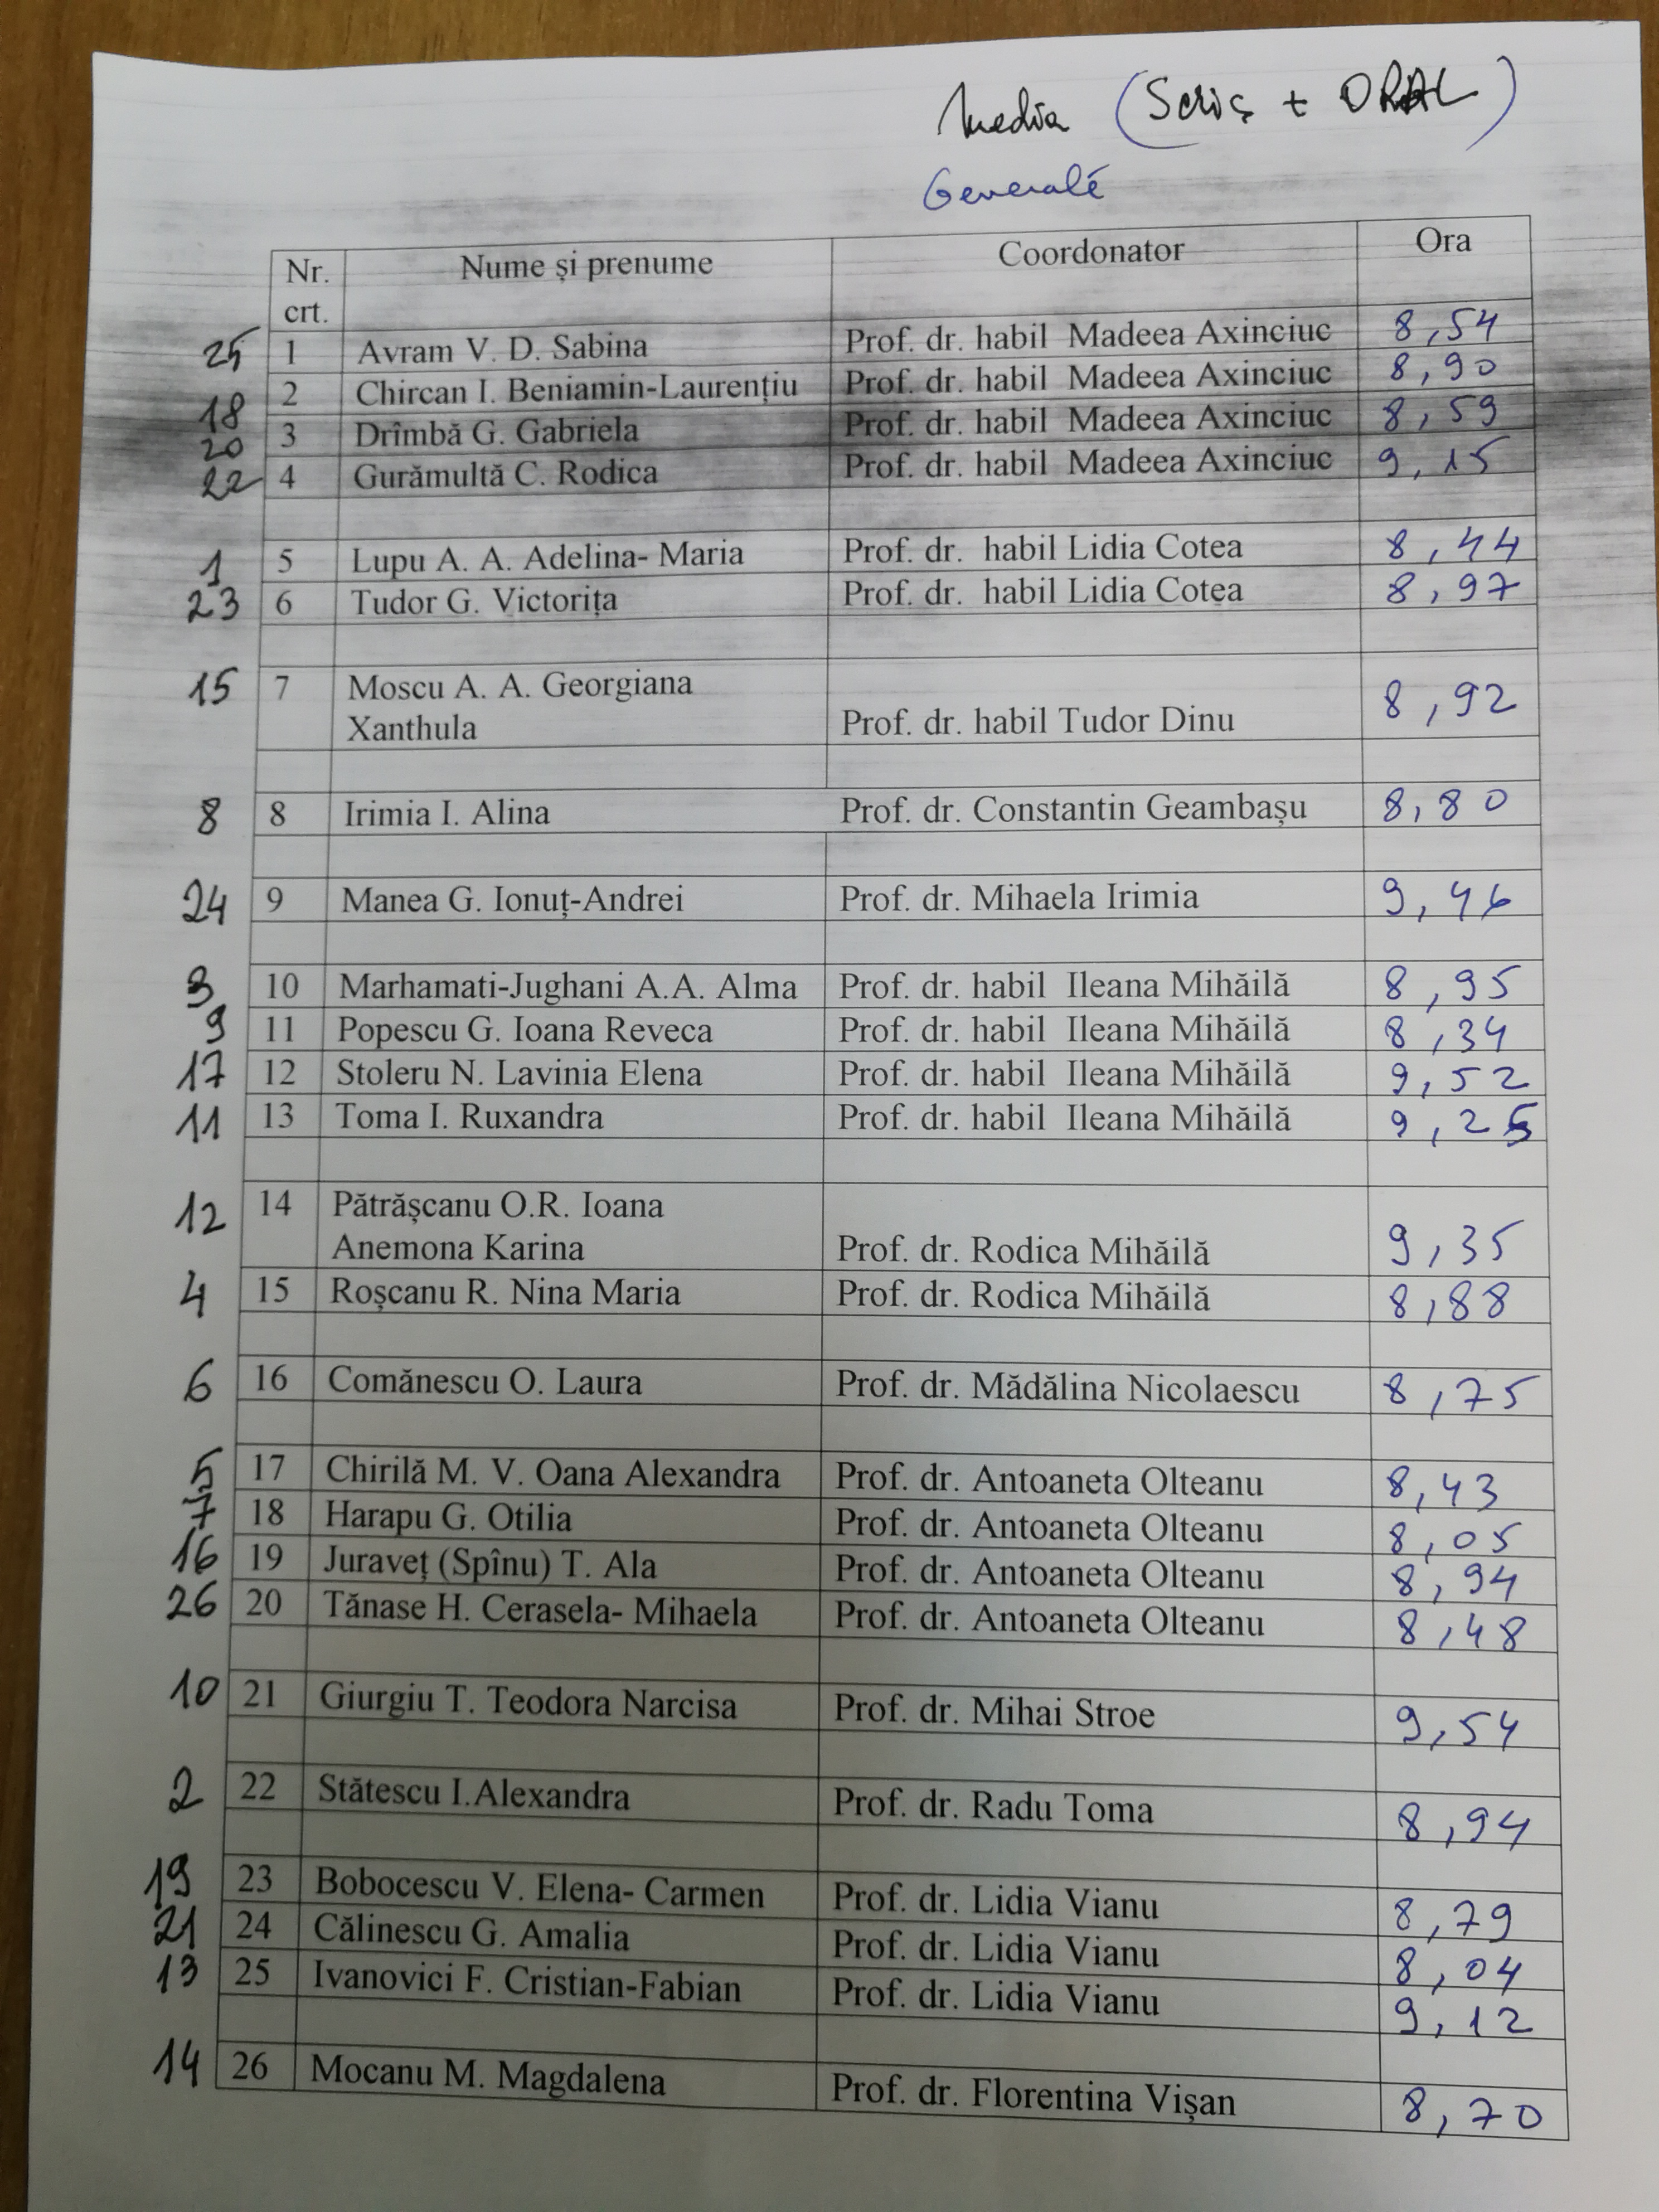 Media (Scris + ORAL)
Generală
Nr. crt. Nume și prenume Coordonator Ora
25 1 Avram V. D. Sabina Prof. dr. habil Madeea Axinciuc 8,54
18 2 Chircan I. Beniamin-Laurențiu Prof. dr. habil Madeea Axinciuc 8,90
20 3 Drîmbă G. Gabriela Prof. dr. habil Madeea Axinciuc 8,59
22 4 Gurămultă C. Rodica Prof. dr. habil Madeea Axinciuc 9,15
1 5 Lupu A. A. Adelina- Maria Prof. dr. habil Lidia Cotea 8,44
23 6 Tudor G. Victorița Prof. dr. habil Lidia Cotea 8,97
15 7 Moscu A. A. Georgiana
Xanthula Prof. dr. habil Tudor Dinu 8,92
8 8 Irimia I. Alina Prof. dr. Constantin Geambașu 8,80
24 9 Manea G. Ionuț-Andrei Prof. dr. Mihaela Irimia 9,46
3 10 Marhamati-Jughani A.A. Alma Prof. dr. habil Ileana Mihăilă 8,95
9 11 Popescu G. Ioana Reveca Prof. dr. habil Ileana Mihăilă 8,34
17 12 Stoleru N. Lavinia Elena Prof. dr. habil Ileana Mihăilă 9,52
11 13 Toma I. Ruxandra Prof. dr. habil Ileana Mihăilă 9,25
12 14 Pătrășcanu O.R. Ioana
Anemona Karina Prof. dr. Rodica Mihăilă 9,35
4 15 Roșcanu R. Nina Maria Prof. dr. Rodica Mihăilă 8,88
6 16 Comănescu O. Laura Prof. dr. Mădălina Nicolaescu 8,75
5 17 Chirilă M. V. Oana Alexandra Prof. dr. Antoaneta Olteanu 8,43
7 18 Harapu G. Otilia Prof. dr. Antoaneta Olteanu 8,05
16 19 Juraveț (Spînu) T. Ala Prof. dr. Antoaneta Olteanu 8,94
26 20 Tănase H. Cerasela- Mihaela Prof. dr. Antoaneta Olteanu 8,48
10 21 Giurgiu T. Teodora Narcisa Prof. dr. Mihai Stroe 9,54
2 22 Stătescu I.Alexandra Prof. dr. Radu Toma 8,94
19 23 Bobocescu V. Elena- Carmen Prof. dr. Lidia Vianu 8,79
21 24 Călinescu G. Amalia Prof. dr. Lidia Vianu 8,04
13 25 Ivanovici F. Cristian-Fabian Prof. dr. Lidia Vianu 9,12
14 26 Mocanu M. Magdalena Prof. dr. Florentina Vișan 8,70